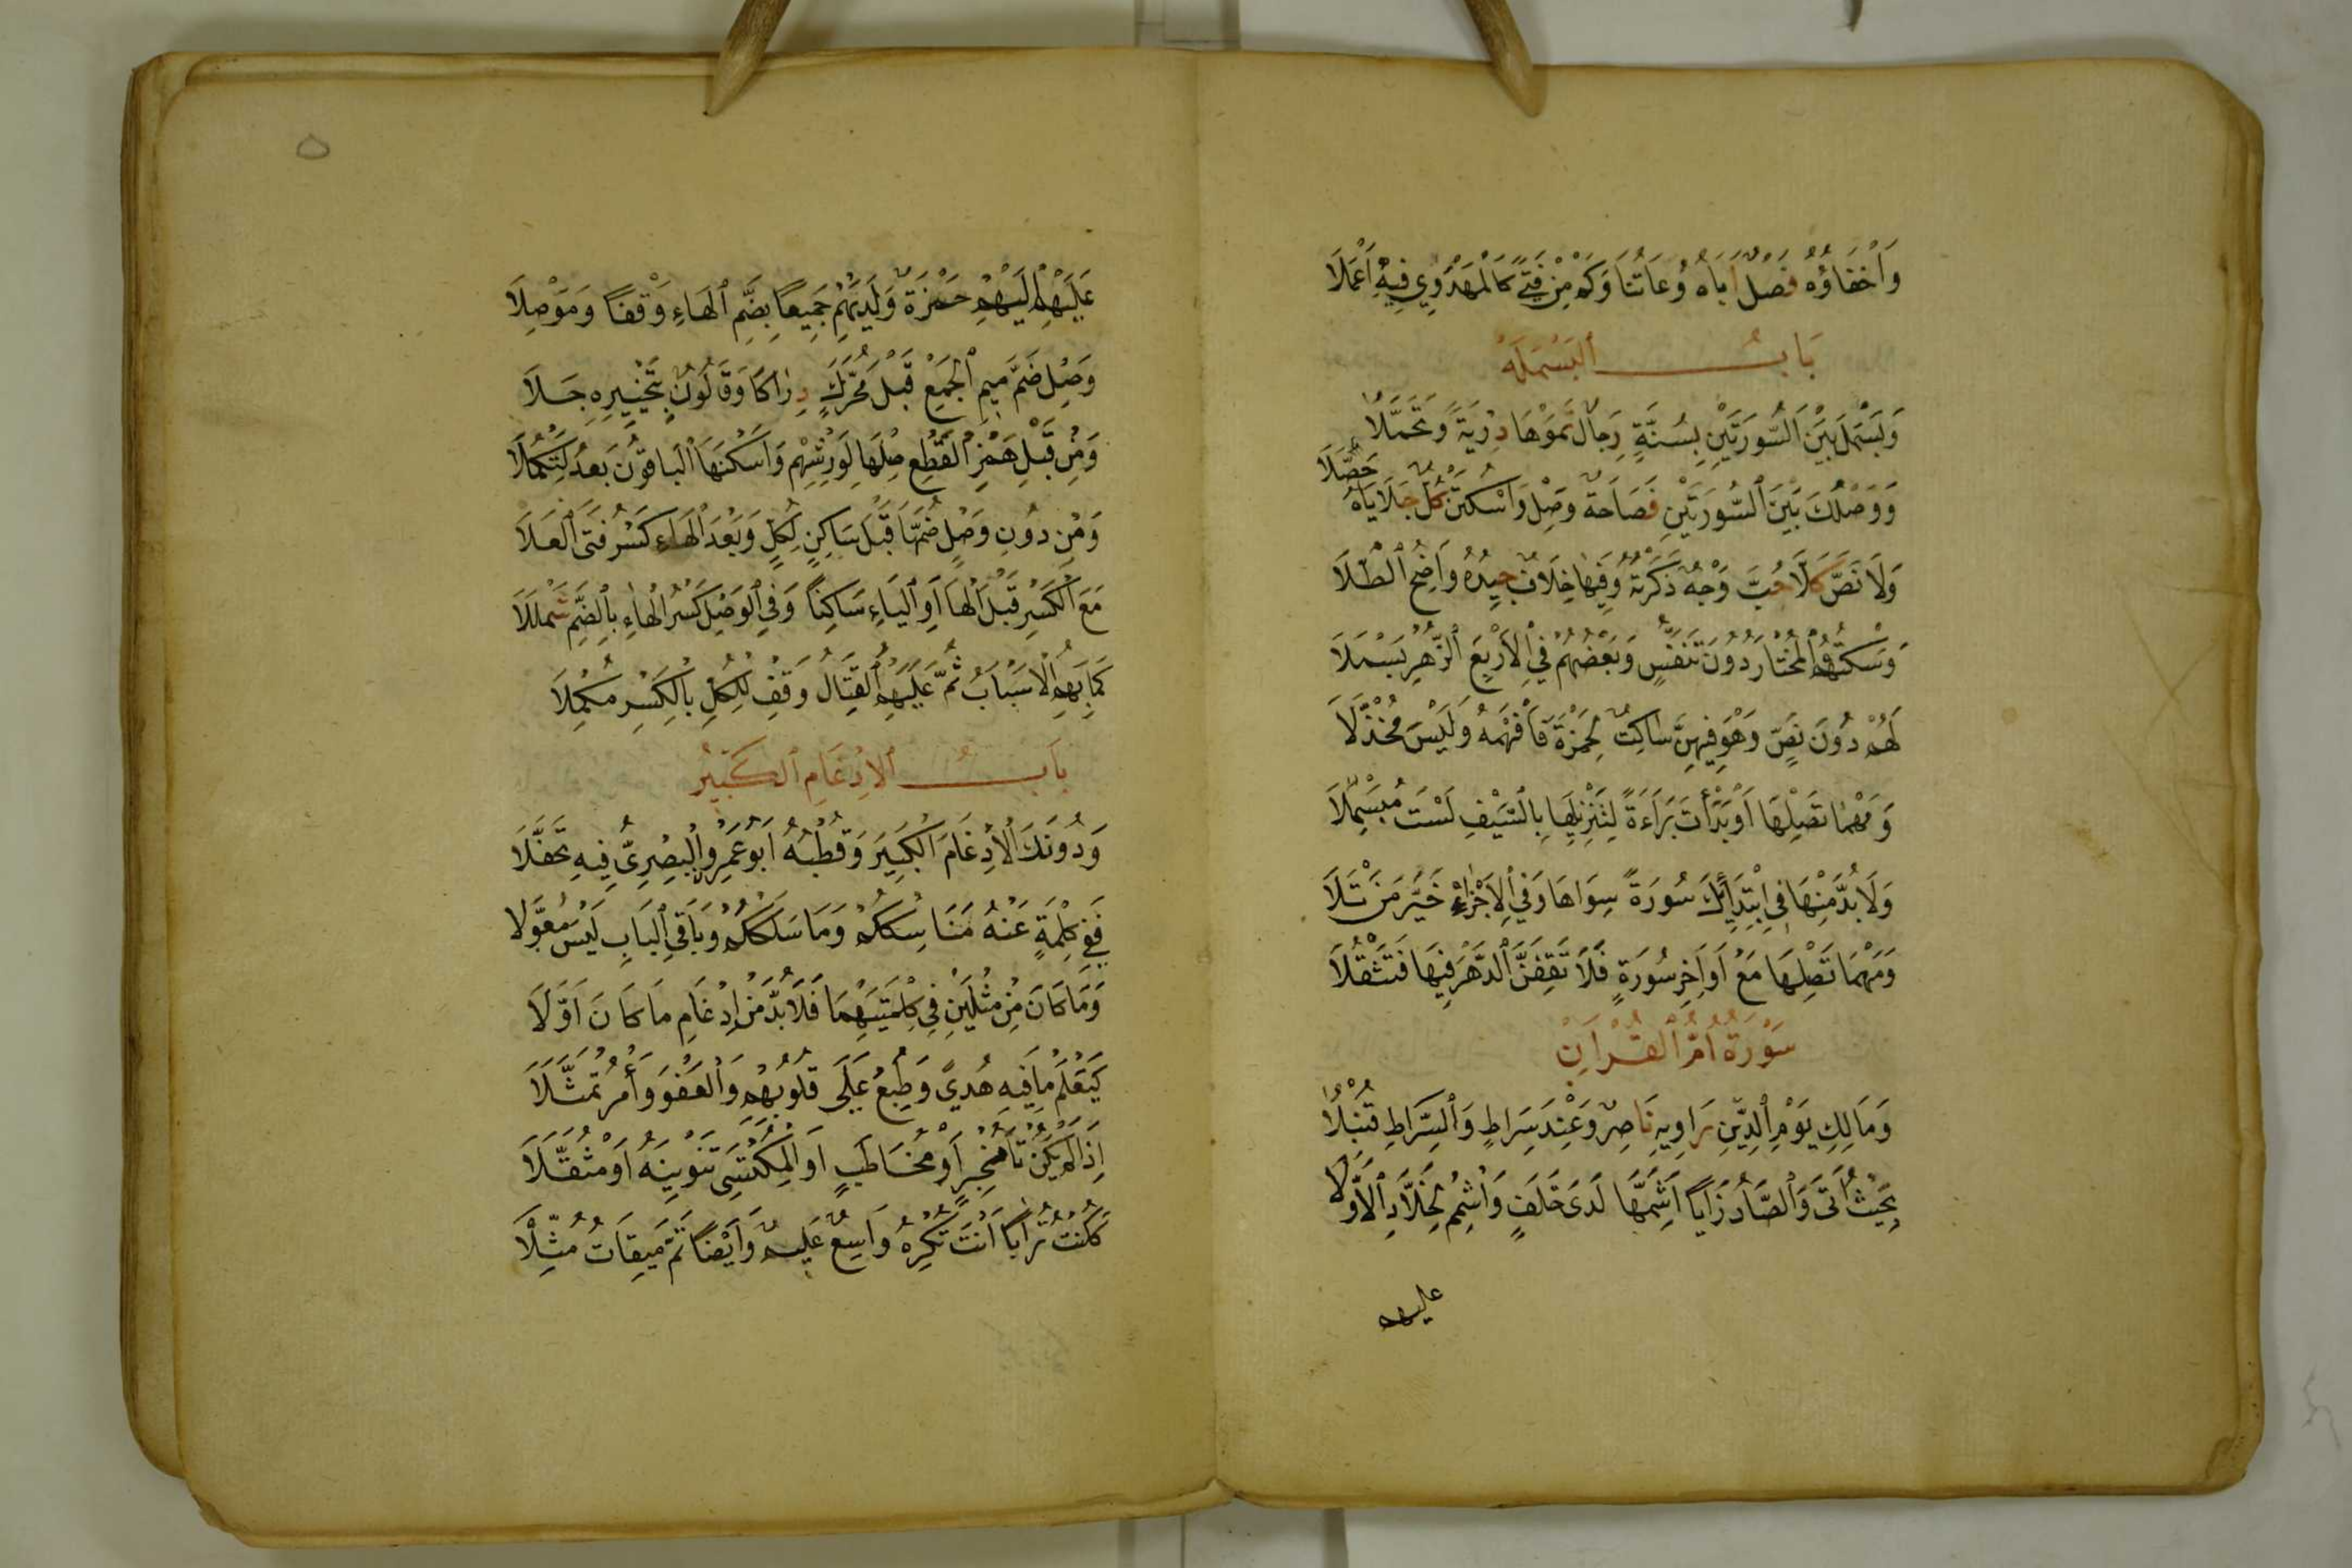 وَاَخْفَاؤُهُ فَصْلٌ اَبَاهُ وُعَاتُنَا وَكَمْ مِنْ فَتًى كَالْمَهْدَوِي فِيهِ اَعْمَلَا
بَابُ ٱلبَسْمَلَةِ
وَبَسْمَلَ بَيْنَ ٱلسُّورَتَيْنِ بِسُنَّةٍ رِجَالٌ نَمَوْهَا دِرْيَةً وَتَحَمُّلَا
وَوَصْلُكَ بَيْنَ ٱلسُّورَتَيْنِ فَصَاحَةٌ وَصِلْ وَاسْكُتَنْ كُلٌّ جَلَايَاهُ حَصَّلَا
وَلَا نَصَّ كَلَّا حُبَّ وَجْهٌ ذَكَرْتُهُ وَفِيهَا خِلَافٌ جِيدُهُ وَاضِحُ ٱلطُّلَا
وَسَكْتُهُمُ ٱلْمُخْتَارُ دُونَ تَنَفُّسٍ وَبَعْضُهُمُ فِي ٱلْاَرْبَعِ ٱلزُّهْرِ بَسْمَلَا
لَهُمْ دُونَ نَصٍّ وَهْوَ فِيهِنَّ سَاكِتٌ لِحَمْزَةَ فَافْهَمْهُ وَلَيْسَ مُخَذَّلَا
وَمَهْمَا تَصِلْهَا اَوْ بَدَأْتَ بَرَاءَةً لِتَنْزِيلِهَا بِالسَّيْفِ لَسْتَ مُبَسْمِلَا
وَلَا بُدَّ مِنْهَا فِي ابْتِدَائِكَ سُورَةً سِوَاهَا وَفِي ٱلْاَجْزَاءِ خَيَّرَ مَنْ تَلَا
وَمَهْمَا تَصِلْهَا مَعْ اَوَاخِرِ سُورَةٍ فَلَا تَقِفَنَّ ٱلدَّهْرَ فِيهَا فَتَثْقُلَا
سُورَةُ اُمِّ ٱلْقُرْاٰنِ
وَمَالِكِ يَوْمِ ٱلدِّينِ رَاوِيهِ نَاصِرٌ وَعِنْدَ سِرَاطٍ وَٱلسِّرَاطِ قُنْبُلًا
بِحَيْثُ اَتَى وَٱلصَّادَ زَايًا اَشِمَّهَا لَدَى خَلَفٍ وَاشْمِمْ لِخَلَّادِ ٱلْاَوَّلَا
عليهم
٥
عَلَيْهِمْ اِلَيْهِمْ حَمْزَةٌ وَلَدَيْهِمُ جَمِيعًا بِضَمِّ ٱلهَاءِ وَقْفًا وَمَوْصِلَا
وَصِلْ ضَمَّ مِيمِ ٱلْجَمْعِ قَبْلَ مُحَرَّكٍ دِرَاكًا وَقَالُونٌ بِتَخْيِيرِهِ جَلَا
وَمِنْ قَبْلِ هَمْزِ ٱلْقَطْعِ صِلْهَا لِوَرْشِهِمْ وَاَسْكَنَهَا ٱلْبَاقُونَ بَعْدُ لِتَكْمُلَا
وَمِنْ دُونِ وَصْلٍ ضُمَّهَا قَبْلَ سَاكِنٍ لِكُلٍّ وَبَعْدَ ٱلْهَاءِ كَسْرُ فَتَى ٱلْعَلَا
مَعَ ٱلْكَسْرِ قَبْلَ ٱلْهَا اَوِ ٱلْيَاءِ سَاكِنًا وَفِي ٱلْوَصْلِ كَسْرُ ٱلْهَاءِ بِالضَّمِّ شَمْلَلَا
كَمَا بِهِمُ ٱلْاَسْبَابُ ثُمَّ عَلَيْهِمُ ٱلْقِتَالُ وَقِفْ لِلْكُلِّ بِالْكَسْرِ مُكْمِلَا
بَابُ ٱلاِدْغَامِ ٱلكَبِيرُ
وَدُونَكَ ٱلْاِدْغَامَ ٱلْكَبِيرَ وَقُطْبُهُ اَبُو عَمْرٍو ٱلْبَصْرِيُّ فِيهِ تَحَفَّلَا
فَفِي كِلْمَةٍ عَنْهُ مَنَاسِكَكُمْ وَمَا سَلَكَكُمْ وَبَاقِي ٱلْبَابِ لَيْسَ مُعَوَّلَا
وَمَا كَانَ مِنْ مِثْلَيْنِ فِي كِلْمَتَيْهِمَا فَلَا بُدَّ مِنْ اِدْغَامِ مَا كَانَ اَوَّلَا
كَيَعْلَمُ مَا فِيهِ هُدًى وَطُبِعْ عَلَى قُلُوبِهِمُ وَٱلْعَفْوَ وَأْمُرْ تَمَثَّلَا
اِذَا لَمْ يَكُنْ تَا مُخْبِرٍ اَوْ مُخَاطَبٍ اَوِ ٱلْمُكْتَسِي تَنْوِينَهُ اَوْ مُثَقَّلَا
كَكُنْتُ تُرَابًا اَنْتَ تُكْرِهُ وَاسِعٌ عَلِيمٌ وَاَيْضًا تَمَّ مِيقَاتُ مُثِّلَا